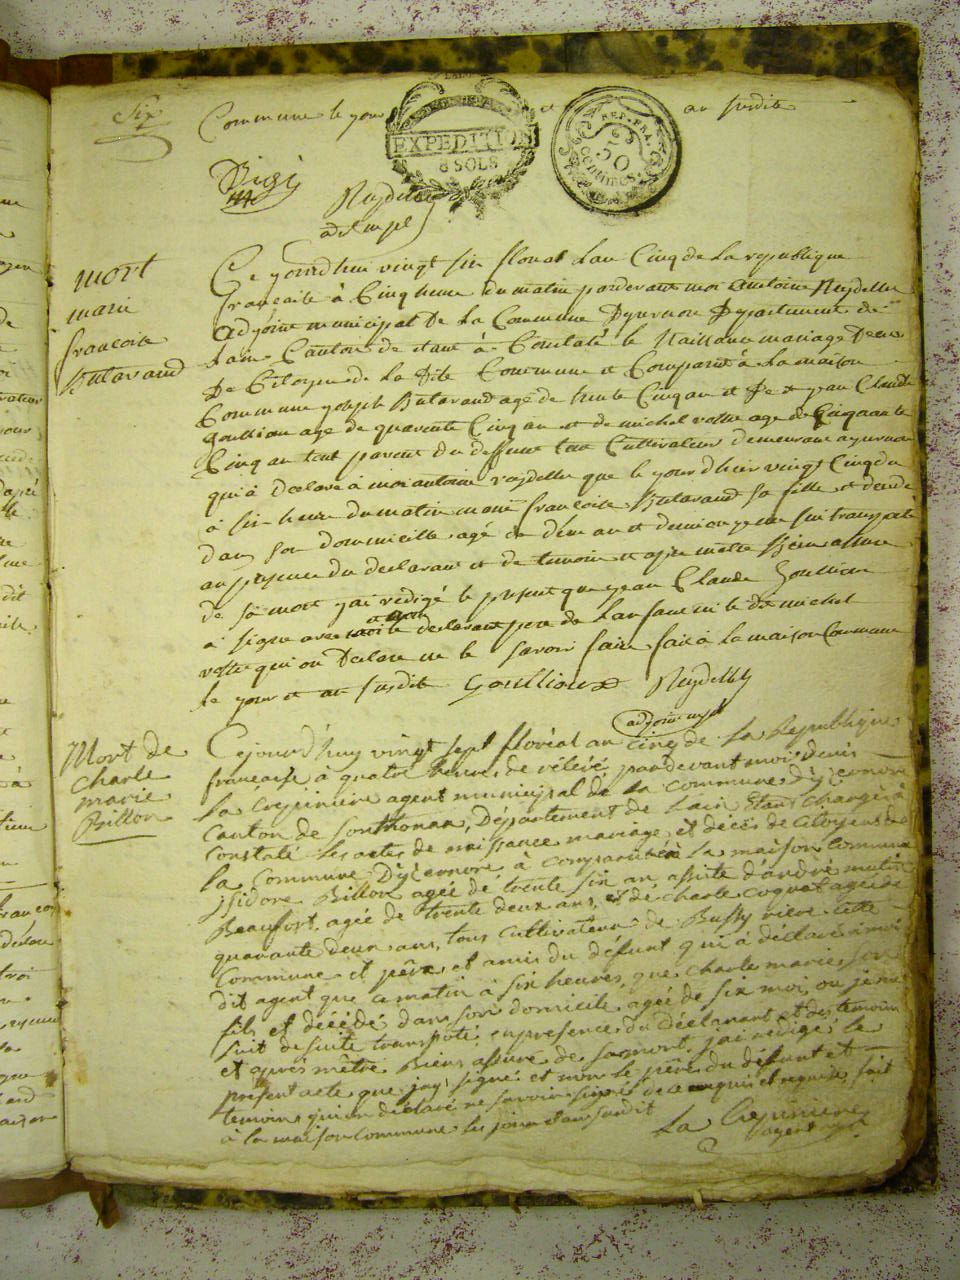 Six
Commune le jour et an susdite
EXPEDITION
8 SOLS
REP. FRA.
50
CENTIMES
Reydelle
adj mpl
mort
marie
francoise
Butavand
Ce jourdhui vingt six floreal lan Cinq de la republique
francaise à Cinq heure du matin pardevant moi antoine Reydelle
adjoint municipal de la Commune Dyzernore Departement de
lain Canton de Constaté le Naissance mariage Deces
De Citoyens de la Dite Commune et Comparut à la maison
Commune joseph Butavand age de trente Cinq an et De jean Claude
Goullioux age de quarente Cinq an et de michel vottié age de Cinquante
Cinq an tout parent du deffunt tout Cultivateur demeurant
qui à Declaré à moi antoine reydellet que le jourdhui vingt Cinq du
à six heure du matin marie francoise Butavand sa fille et decedé
dans son domicille agé de an et demi ou je me suis transporté
au presence du declarant et de temoin et apres mettre Bien assuré
de sa mort jai redigé le present que jean Claude Goullioux
à signe avec moi le declarant pere de lanfant ni le dit michel
vottié qui on Declaré ne le savoir faire fait à la maison Commune
le jour et an susdite Goullioux Reydellet
adjoint mpl
Mort de
Charle
marie
Billon
Cejourd'huy vingt sept floréal an cinq de la Republique
francaise à quatre heures de rélevé, pardevant moi Denis
La Crepiniere agent municipal de la commune d'yzernore
canton de Sonthonax, Département de Lain Etant chargé à
constaté les actes de naissance mariage et décés de citoyens de
la Commune Dyzernore, à comparut à la maison commune
jsidore Billon agée de trente six an assisté d'andré mutin
Beaufort, agée de trente deux ans, et de charle coquet agée de
quarante deux ans, tous cultivateur de Bussy riere cette
commune et pére et amis du défunt qui à déclaré à moi
dit agent que ce matin à six heures, que charle marie son
fils et décédé dans son domicile, agée de six moi, ou je me
suit de suite transporté, en presence du Déclarant et des temoin
et après m'être Bien assuré de sa mort, j'ai rédigé le
présent acte que j'ay signé et non le pére du défunt et
temoins qui on déclaré ne savoir signé de ce enquis et requis, fait
à la maison commune les jour et an susdit
La Crepiniere
agent mpl